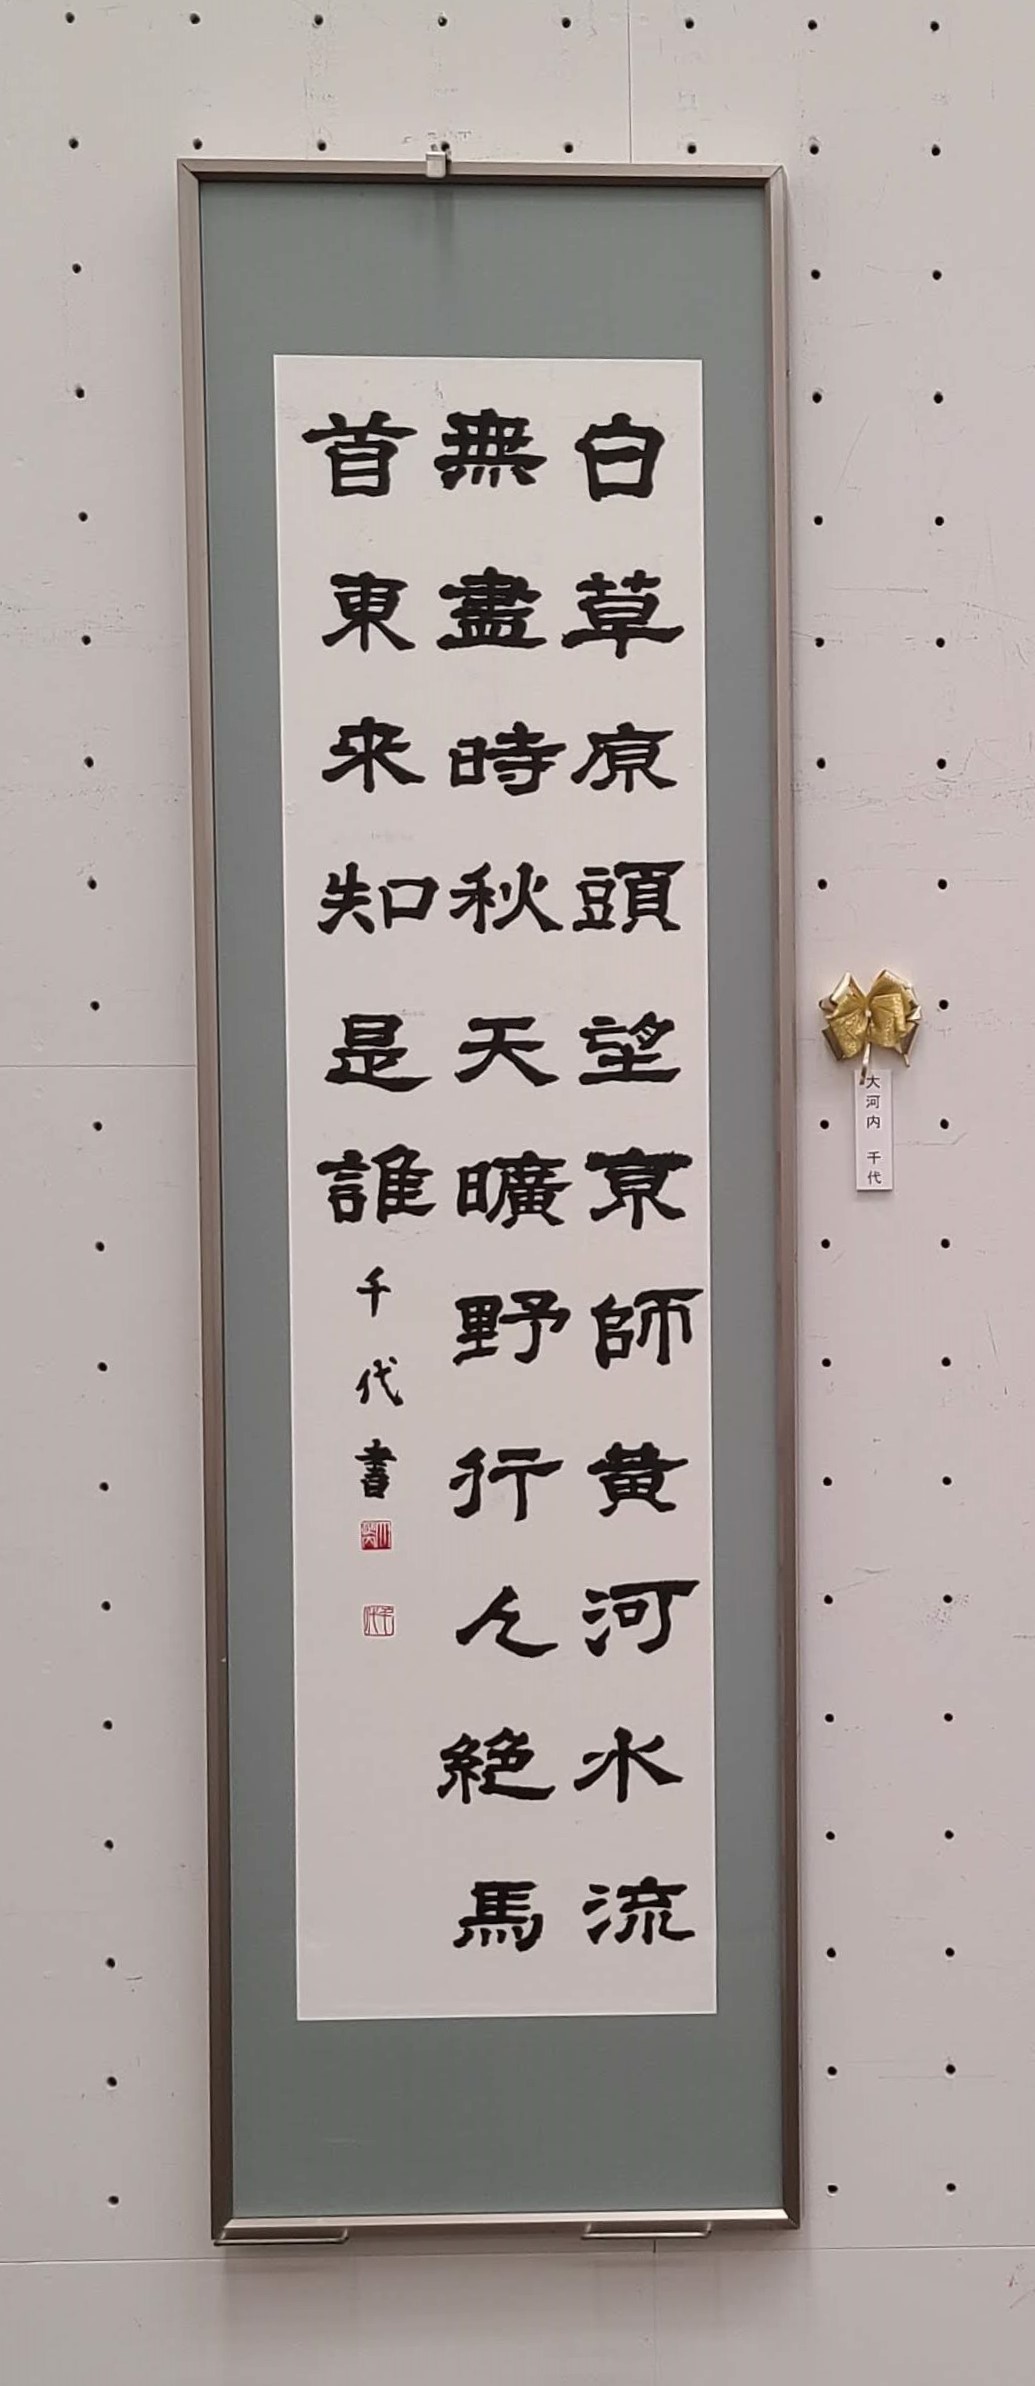 白草原頭望京師黄河水流
無盡時秋天曠野行人絶馬
首東来知是誰
千代書
大河内 千代